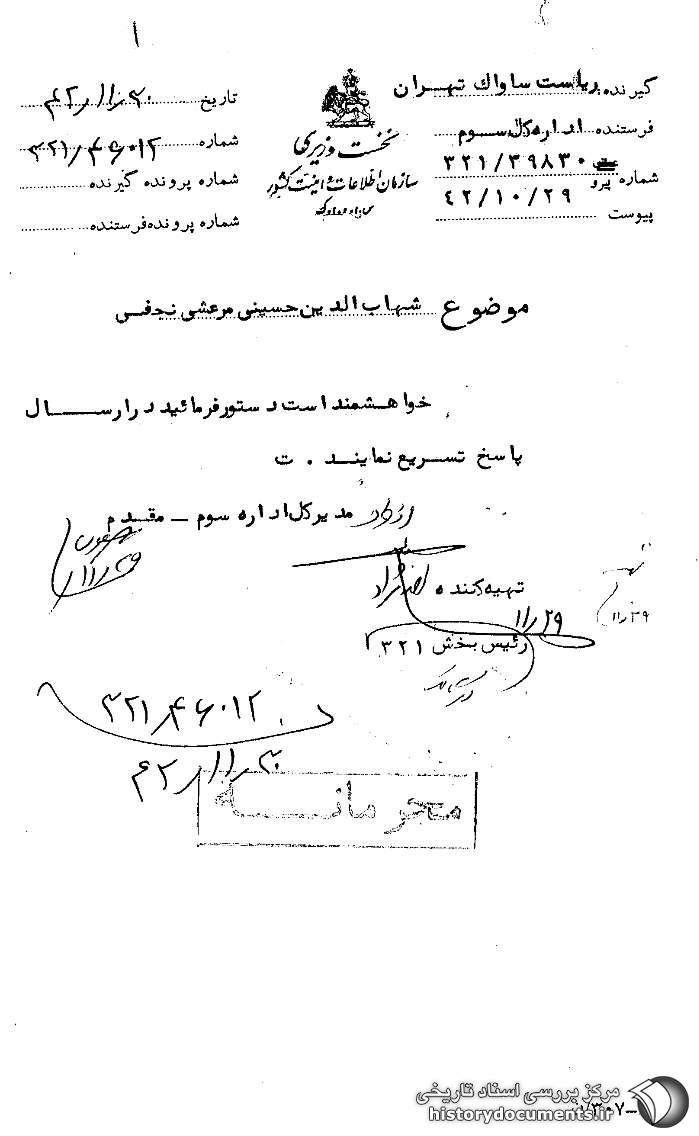 گیرنده ریاست ساواک تهران
فرستنده اداره کل سوم
۳۲۱/۳۹۸۳۰
شماره پیرو ۴۲/۱۰/۲۹
پیوست
نخست وزیری
سازمان اطلاعات و امنیت کشور
س.ا.و.ا.ک
تاریخ ۴۲/۱۱/۳۰
شماره ۳۲۱/۴۶۰۱۲
شماره پرونده گیرنده
شماره پرونده فرستنده
موضوع شهاب الدین حسینی مرعشی نجفی
خواهشمند است دستور فرمائید در ارسال
پاسخ تسریع نمایند . ت
مدیر کل اداره سوم – مقدم
۲۹/۱۱
تهیه کننده
۲۹/۱۱
۲۹/۱۱
رئیس بخش ۳۲۱
۳۲۱/۴۶۰۱۲
۴۲/۱۱/۳۰
محرمانه
مرکز بررسی اسناد تاریخی
historydocuments.ir